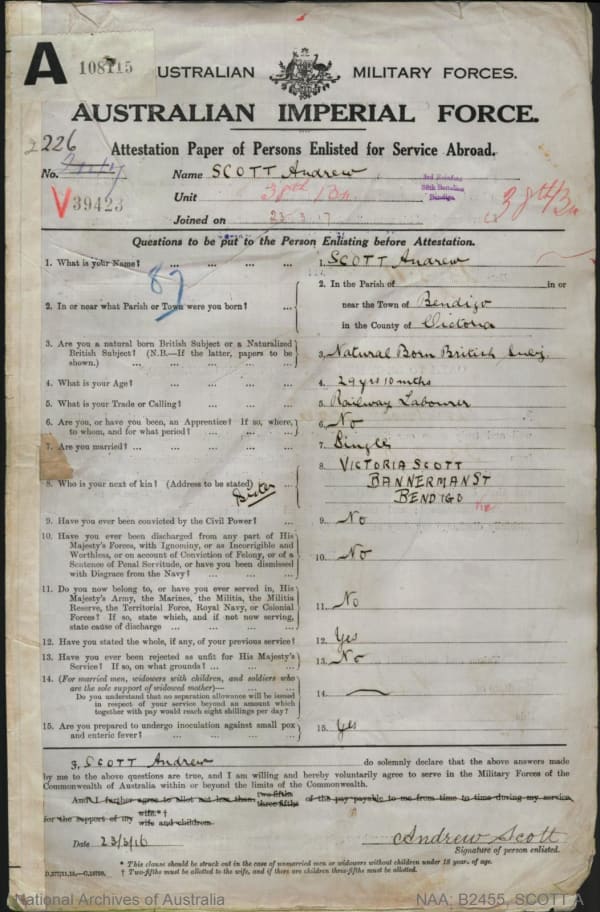 A
108115
AUSTRALIAN MILITARY FORCES.
AUSTRALIAN IMPERIAL FORCE.
2226
Attestation Paper of Persons Enlisted for Service Abroad.
No. Name SCOTT Andrew
V39423
Unit 38th Bn.
38th Battalion
Bendigo.
38th Bn
Joined on 23.3.17
Questions to be put to the Person Enlisting before Attestation.
87
1. What is your Name? ... ... ... ...
1. SCOTT Andrew
2. In or near what Parish or Town were you born? ...
2. In the Parish of in or
near the Town of Bendigo
in the County of Victoria
3. Are you a natural born British Subject or a Naturalized
British Subject? (N.B.—If the latter, papers to be
shown.) ... ... ... ... ...
3. Natural Born British Subj.
4. What is your Age? ... ... ... ...
4. 29 yrs 10 mths
5. What is your Trade or Calling? ... ... ...
5. Railway Labourer
6. Are you, or have you been, an Apprentice? If so, where,
to whom, and for what period? ... ... ...
6. No
7. Are you married? ... ... ... ... ...
7. Single
8. Who is your next of kin? (Address to be stated) ...
Sister
8 VICTORIA SCOTT
BANNERMAN ST
BENDIGO
9. Have you ever been convicted by the Civil Power? ...
9. No
10. Have you ever been discharged from any part of His
Majesty's Forces, with Ignominy, or as Incorrigible and
Worthless, or on account of Conviction of Felony, or of a
Sentence of Penal Servitude, or have you been dismissed
with Disgrace from the Navy? ... ... ...
10. No
11. Do you now belong to, or have you ever served in, His
Majesty's Army, the Marines, the Militia, the Militia
Reserve, the Territorial Force, Royal Navy, or Colonial
Forces? If so, state which, and if not now serving,
state cause of discharge ... ... ... ...
11. No
12. Have you stated the whole, if any, of your previous service?
12. Yes
13. Have you ever been rejected as unfit for His Majesty's
Service? If so, on what grounds? ... ... ...
13. No
14. (For married men, widowers with children, and soldiers who
are the sole support of widowed mother)—
Do you understand that no separation allowance will be issued
in respect of your service beyond an amount which
together with pay would reach eight shillings per day?
14. —
15. Are you prepared to undergo inoculation against small pox
and enteric fever? ... ... ... ...
15. Yes
I, SCOTT Andrew do solemnly declare that the above answers made
by me to the above questions are true, and I am willing and hereby voluntarily agree to serve in the Military Forces of the
Commonwealth of Australia within or beyond the limits of the Commonwealth.
And I further agree to allot not less than two-fifths three-fifths of the pay payable to me from time to time during my service
for the support of my wife.* † wife and children.
Date 23/3/16
Andrew Scott
Signature of person enlisted.
* This clause should be struck out in the case of unmarried men or widowers without children under 18 years of age.
† Two-fifths must be allotted to the wife, and if there are children three-fifths must be allotted.
National Archives of Australia
NAA: B2455, SCOTT A